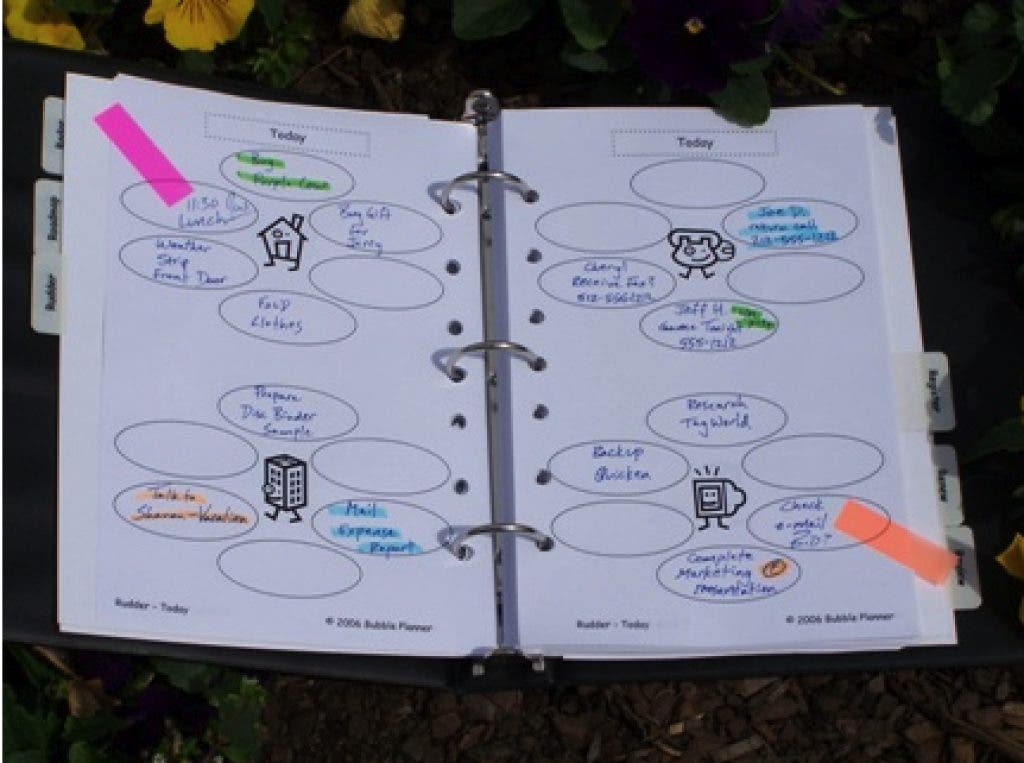 Today
Buy
Purple Cow
11:30
Lunch
Buy Gift
for
Jerry
Weather
Strip
Front Door
Fold
Clothes
Prepare
Disc Binder
Sample
Talk to
Sharon-Vacation
Mail
Expense
Report
Rudder - Today
© 2006 Bubble Planner
Today
Joe D.
return call
212-555-1212
Cheryl
Receive Fax?
512-555-1212
Jeff H.
Tonight
555-1212
Research
Tagworld
Backup
Quicken
Check
e-mail
Complete
Marketing
Presentation
Rudder - Today
© 2006 Bubble Planner
Roadmap
Rudder
Register